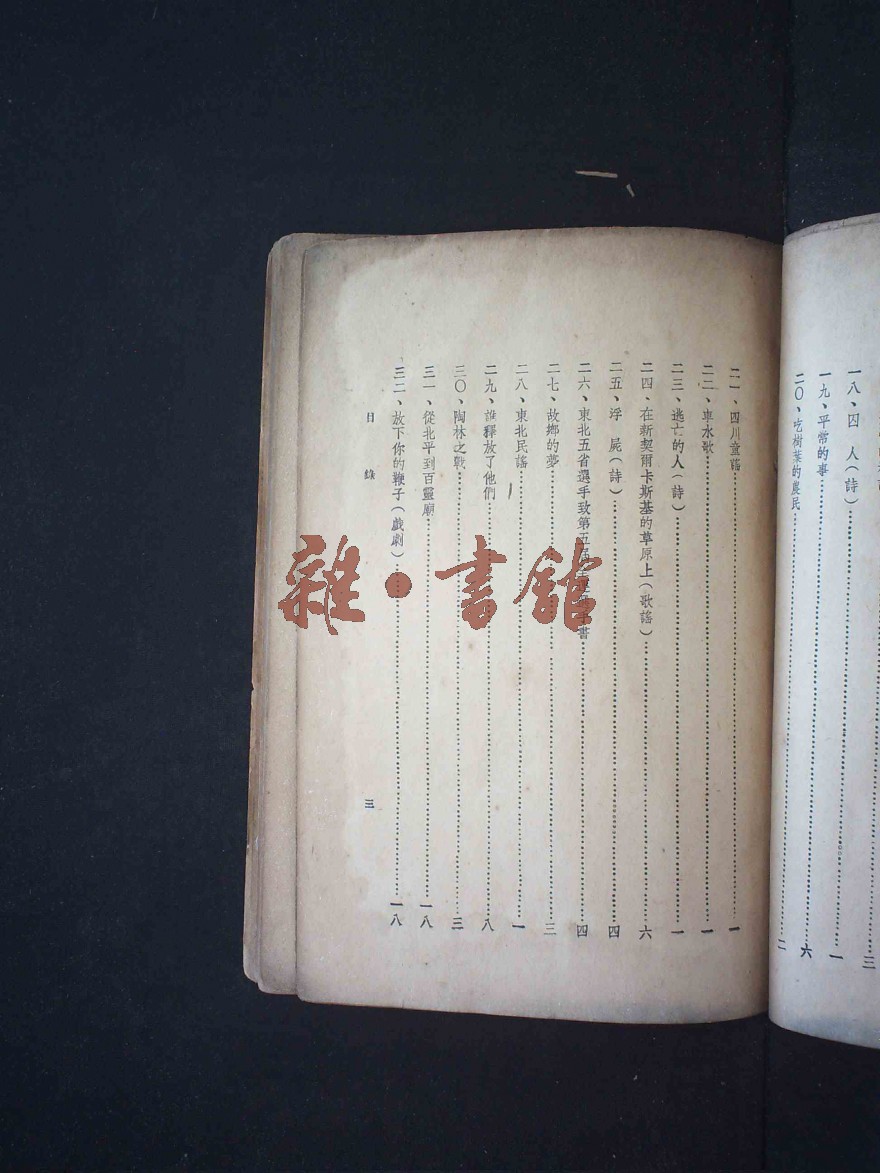 三
一八、四　人（詩）……一
一九、平常的事……六
二〇、吃樹葉的農民……二
二一、四川童謠……一
二二、車水歌……一
二三、逃亡的人（詩）……一
二四、在新契爾卡斯基的草原上（歌謠）……六
二五、浮　屍（詩）……四
二六、東北五省選手致第五屆 書……四
二七、故鄉的夢……三
二八、東北民謠……一
二九、誰釋放了他們……八
三〇、陶林之戰……三
三一、從北平到百靈廟……一八
三二、放下你的鞭子（戲劇）……一八
目　錄　三
雜・書館